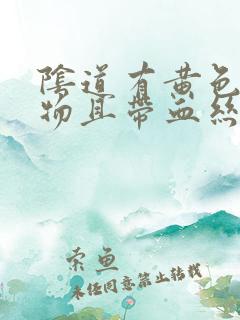 陰道有黃色
物且帶血絲
索魚
未经同意禁止转载